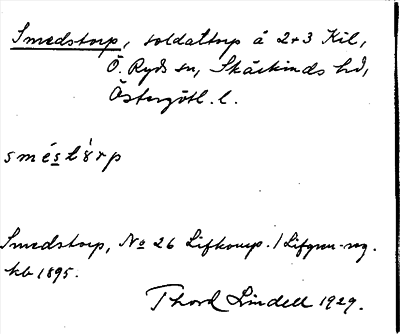 Smedstorp, soldattorp å 2+3 Kil,
Ö. Ryds sn, Skärkinds hd,
Östergötl. l.
smést'órp
Smedstorp, No 26 Lifkomp. / Lifgren-reg.
kb 1895.
Thord Lindell 1929.